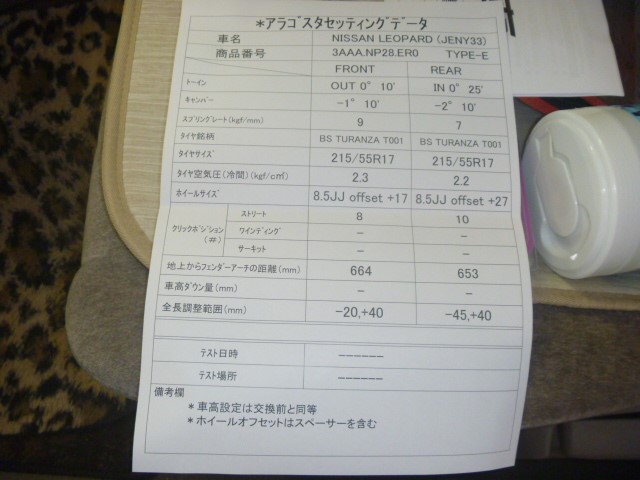 *アラゴスタセッティングデータ
車名 NISSAN LEOPARD (JENY33)
商品番号 3AAA.NP28.ER0 TYPE-E
FRONT REAR
トーイン OUT 0° 10' IN 0° 25'
キャンバー -1° 10' -2° 10'
スプリングレート(kgf/mm) 9 7
タイヤ銘柄 BS TURANZA T001 BS TURANZA T001
タイヤサイズ 215/55R17 215/55R17
タイヤ空気圧(冷間)(kgf/c㎡) 2.3 2.2
ホイールサイズ 8.5JJ offset +17 8.5JJ offset +27
クリックポジション(#) ストリート 8 10
ワインディング - -
サーキット - -
地上からフェンダーアーチの距離(mm) 664 653
車高ダウン量(mm) - -
全長調整範囲(mm) -20,+40 -45,+40
テスト日時 ------
テスト場所 ------
備考欄
*車高設定は交換前と同等
*ホイールオフセットはスペーサーを含む